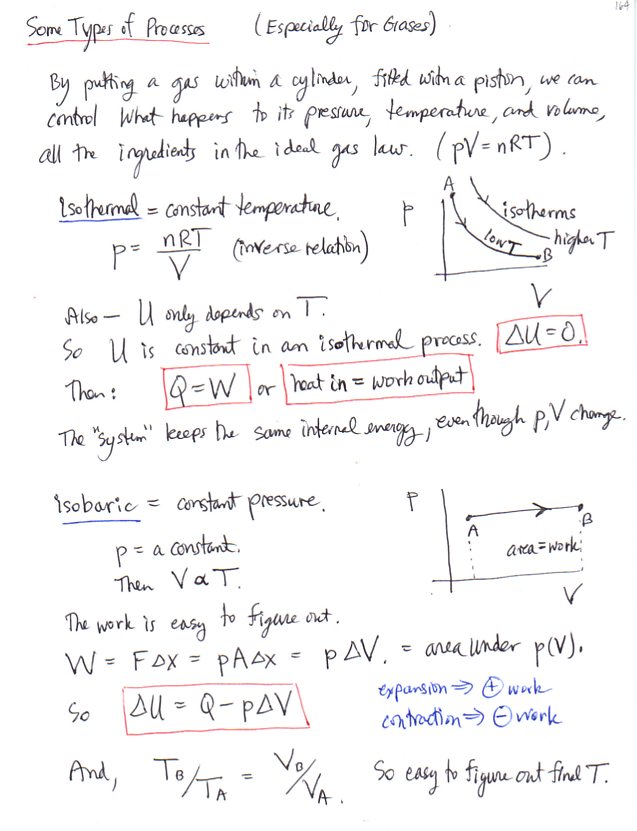 164
Some Types of Processes (Especially for Gases)
By putting a gas within a cylinder, fitted with a piston, we can
control what happens to its pressure, temperature, and volume,
all the ingredients in the ideal gas law. (pV = nRT).
Isothermal = constant temperature.
p = nRT/V (inverse relation)
P
A
isotherms
higher T
low T
B
V
Also — U only depends on T.
So U is constant in an isothermal process. ΔU = 0.
Then: Q = W or heat in = work output
The "system" keeps the same internal energy, even though p, V change.
isobaric = constant pressure.
p = a constant.
Then V ∝ T.
P
A
B
area = work
V
The work is easy to figure out.
W = FΔx = pAΔx = pΔV. = area under p(V).
So ΔU = Q - pΔV
expansion ⇒ ⊕ work
contraction ⇒ ⊖ work
And, T_B/T_A = V_B/V_A. So easy to figure out final T.